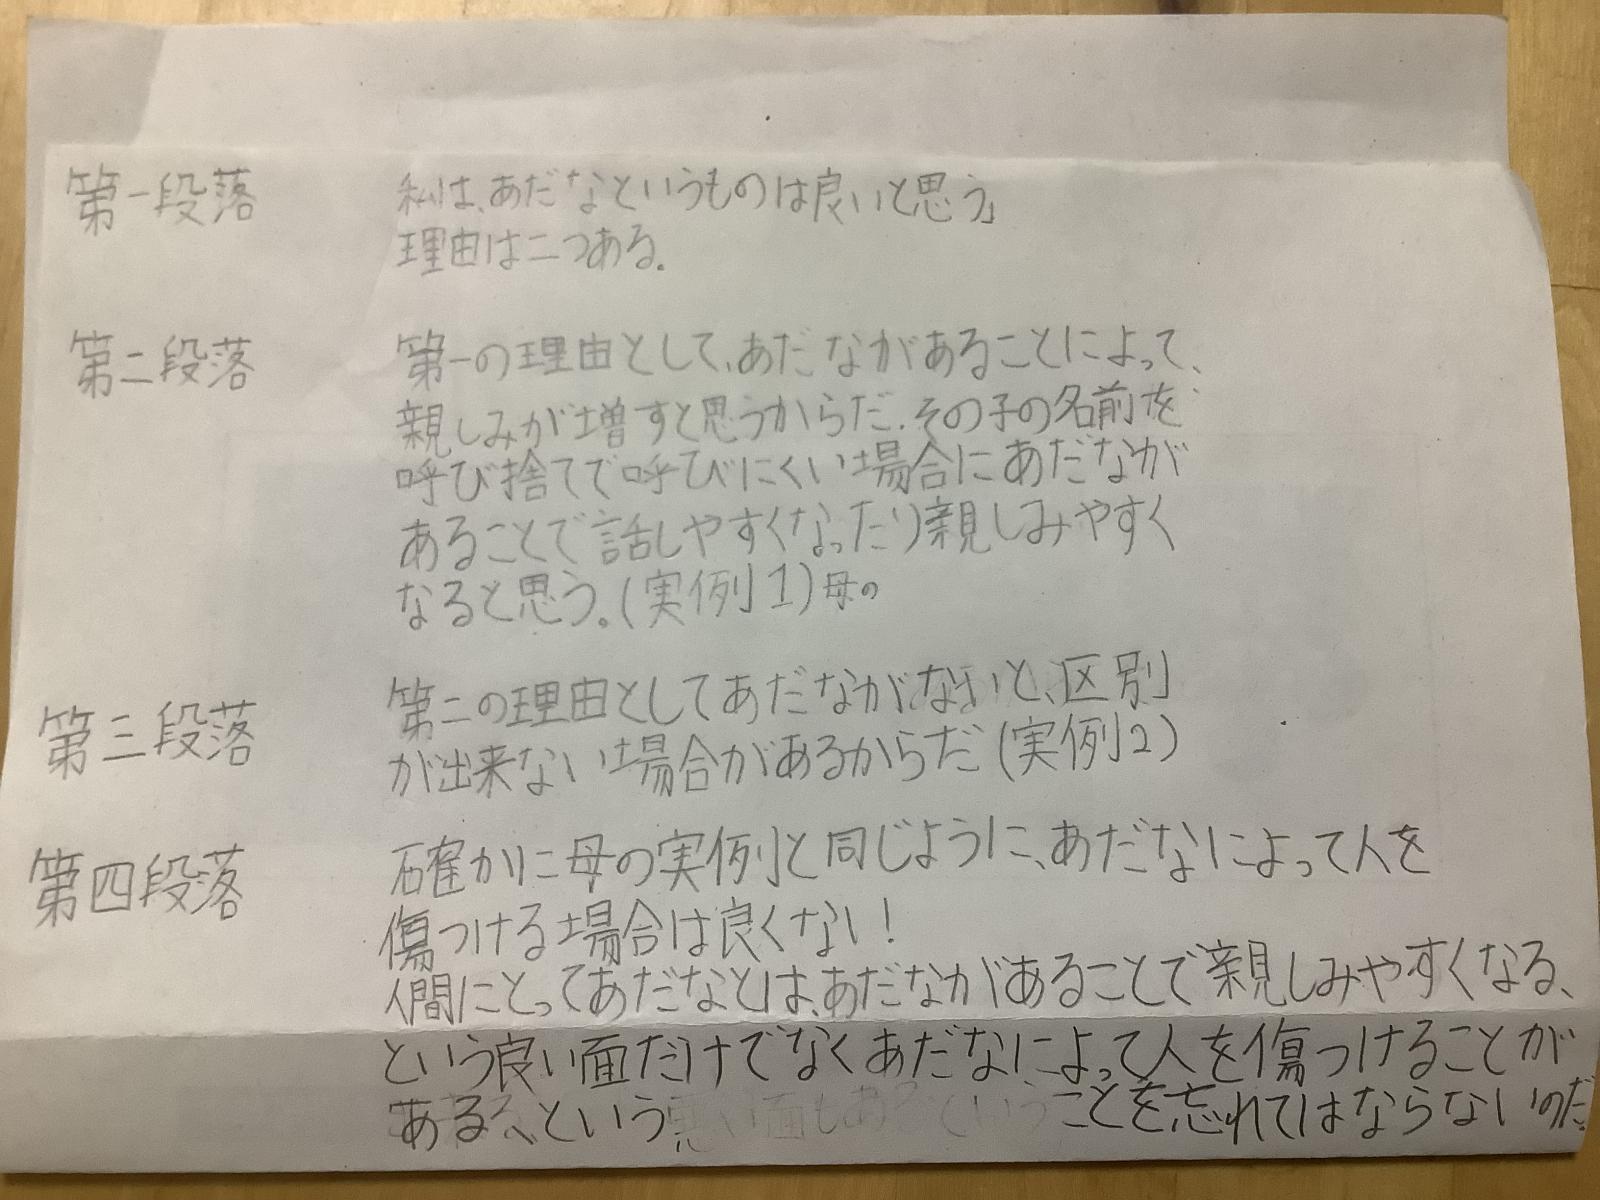 第一段落 私は、あだなというものは良いと思う」
理由は二つある。
第二段落 第一の理由として、あだながあることによって、
親しみが増すと思うからだ。その子の名前を
呼び捨てで呼びにくい場合にあだなが
あることで話しやすくなったり親しみやすく
なると思う。(実例1)母の
第三段落 第二の理由としてあだながないと、区別
が出来ない場合があるからだ(実例2)
第四段落 確かに母の実例と同じように、あだなによって人を
傷つける場合は良くない!
人間にとってあだなとは、あだながあることで親しみやすくなる、
という良い面だけでなくあだなによって人を傷つけることが
ある、という悪い面もあるということを忘れてはならないのだ